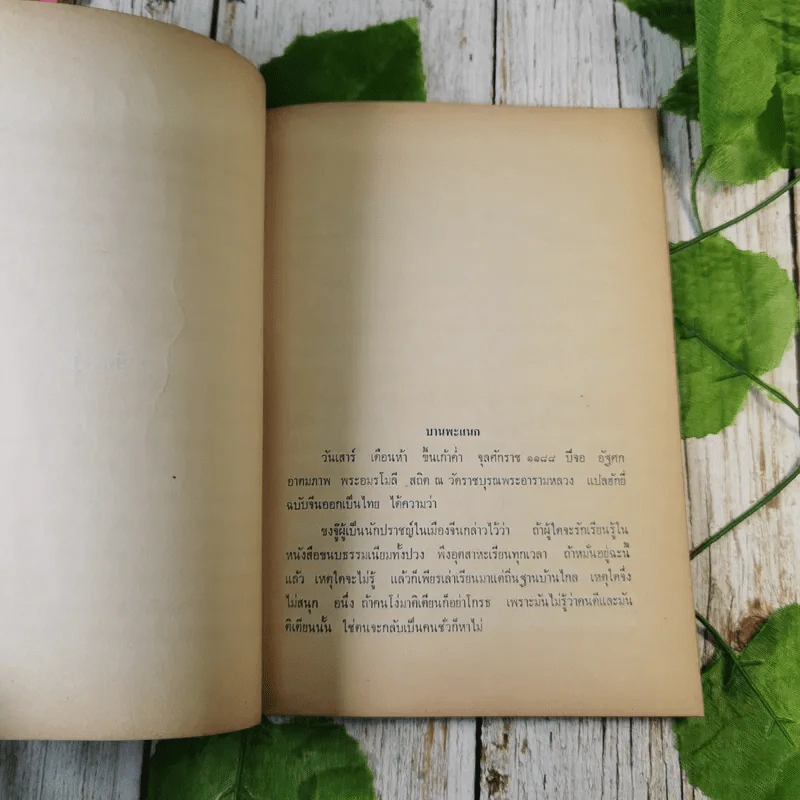 บานพะแนก
วันเสาร์ เดือนห้า ขึ้นเก้าค่ำ จุลศักราช ๑๑๘๘ ปีจอ อัฐศก
อาคมภาพ พระอมรโมลี สถิต ณ วัดราชบุรณพระอารามหลวง แปลฮักยี่
ฉบับจีนออกเป็นไทย ได้ความว่า
ขงจู๊ผู้เป็นนักปราชญ์ในเมืองจีนกล่าวไว้ว่า ถ้าผู้ใดจะรักเรียนรู้ใน
หนังสือขนบธรรมเนียมทั้งปวง พึงอุตสาหะเรียนทุกเวลา ถ้าหมั่นอยู่ฉะนี้
แล้ว เหตุใดจะไม่รู้ แล้วก็เพียรเล่าเรียนมาแต่ถิ่นฐานบ้านไกล เหตุใดจึง
ไม่สนุก อนึ่ง ถ้าคนโง่มาติเตียนก็อย่าโกรธ เพราะมันไม่รู้ว่าคนดีและมัน
ติเตียนนั้น ใช่ตนจะกลับเป็นคนชั่วก็หาไม่